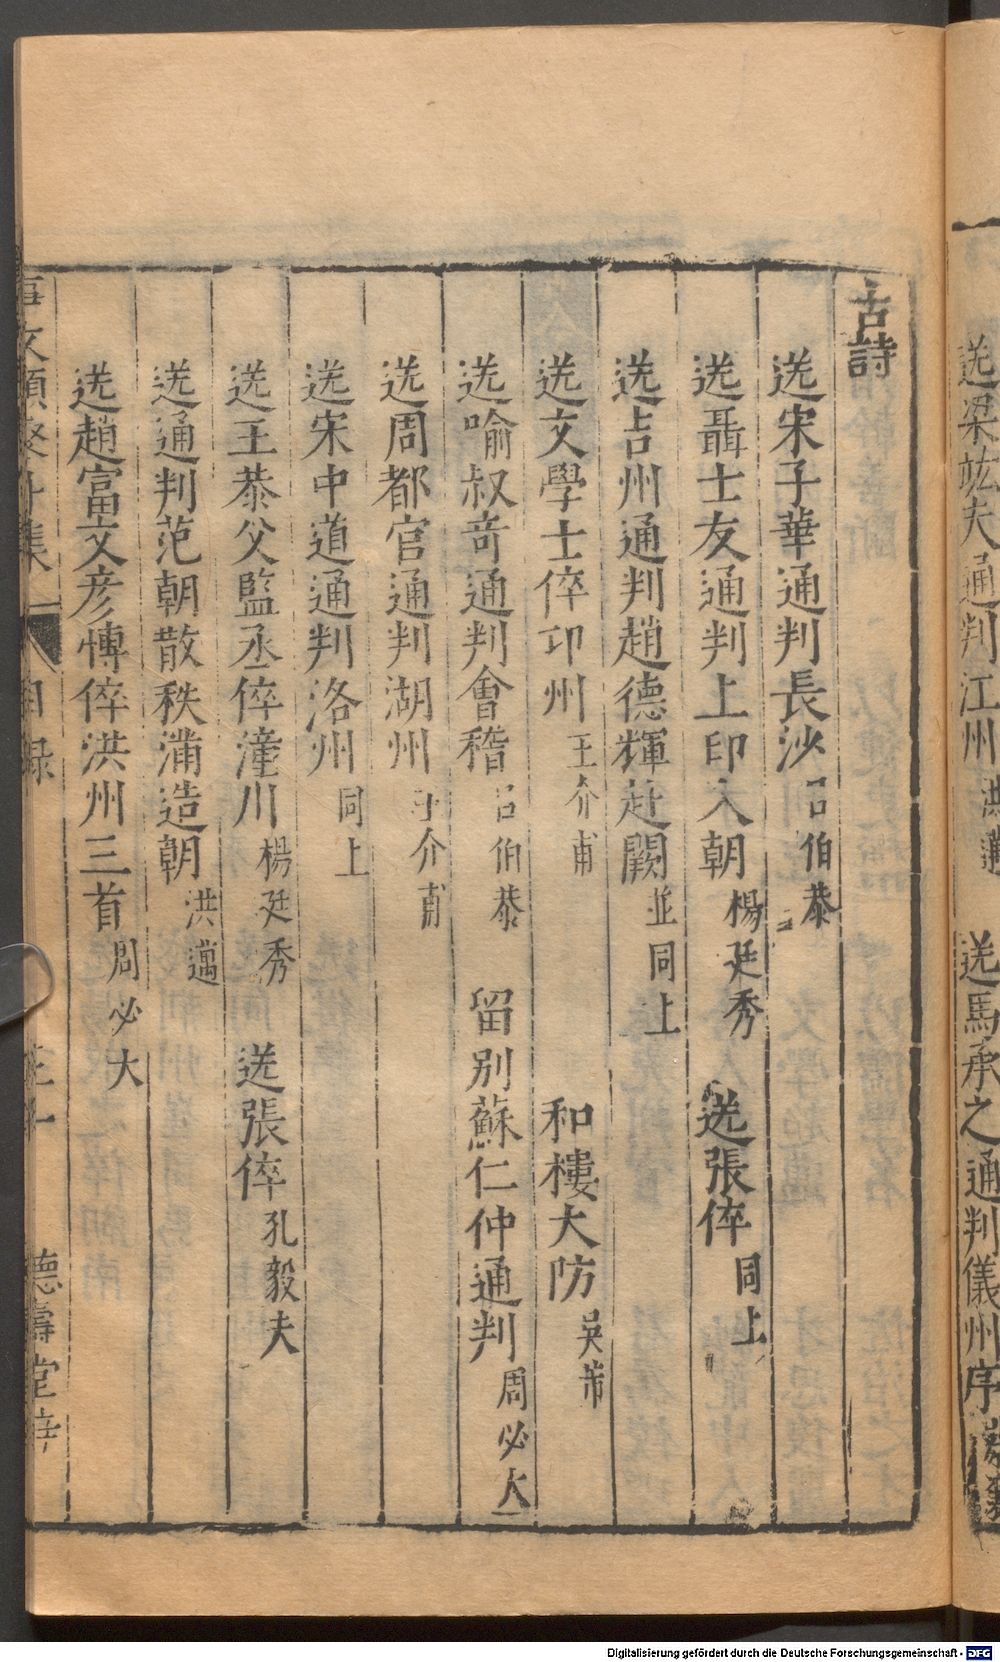 送梁竑夫通判江州 洪邁 送馬承之通判儀州序
古詩
送宋子華通判長沙 呂伯恭
送聶士友通判上印入朝 楊廷秀 送張倅 同上
送吉州通判趙德輝赴闕 並同上
送文學士倅卭州 王介甫 和樓大防 吳芾
送喻叔竒通判會稽 呂伯恭 留别蘇仁仲通判 周必大
送周都官通判湖州 王介甫
送宋中道通判洛州 同上
送王恭父監丞倅潼川 楊廷秀 送張倅 孔毅夫
送通判范朝散秩滿造朝 洪邁
送趙富文彦博倅洪州三首 周必大
事文類聚外集 目録 德壽堂梓
Digitalisierung gefördert durch die Deutsche Forschungsgemeinschaft - DFG